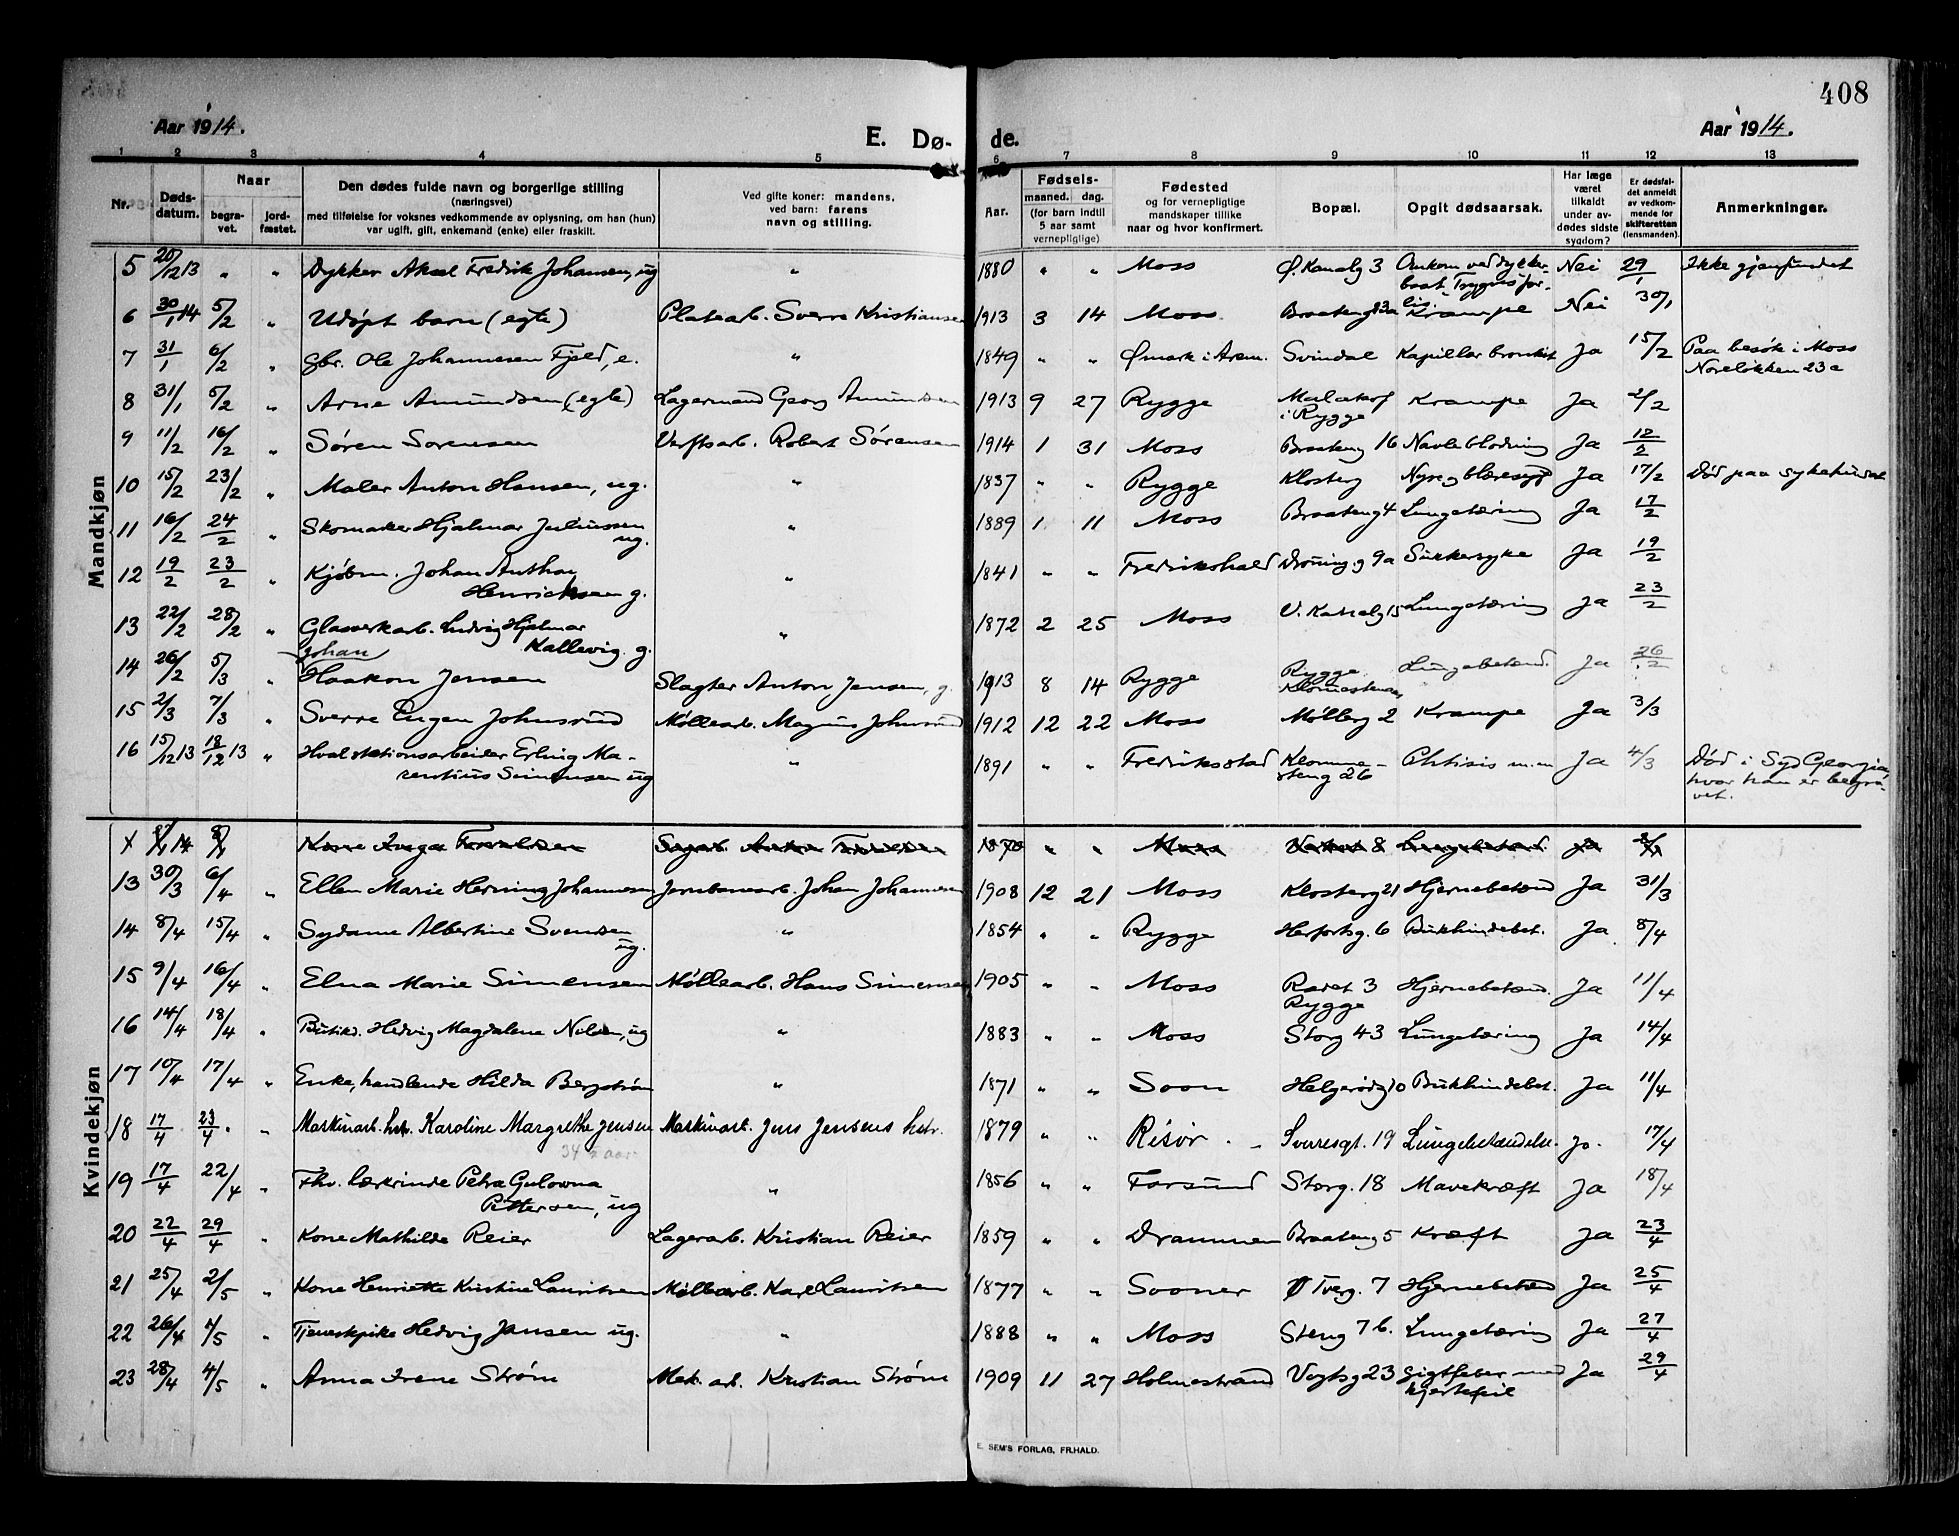 408
Aar 1914.
E. Dø-
de.
Aar 1914.
1 2 3 4 5 6 7 8 9 10 11 12 13
Nr. Døds-datum. Naar begra-vet. jord-fæstet. Den dødes fulde navn og borgerlige stilling (næringsvei) med tilføielse for voksnes vedkommende av oplysning, om han (hun) var ugift, gift, enkemand (enke) eller fraskilt. Ved gifte koner: mandens, ved barn: farens navn og stilling. Aar. Fødsels- maaned. dag. (for barn indtil 5 aar samt vernepligtige) Fødested og for vernepligtige mandskaper tillike naar og hvor konfirmert. Bopæl. Opgit dødsaarsak. Har læge været tilkaldt under av-dødes sidste sygdom? Er dødsfal-det anmeldt av vedkom-mende for skifteretten (lensmanden). Anmerkninger.
Mandkjøn
5 20/12 13 " " Dykker Aksel Fredrik Johansen, ug " 1880 " " Moss Ø. Kanalg 3 Omkom ved dykker-baat Trygves for-lis. Nei 29/1 Ikke gjenfundet
6 30/1 14 5/2 " Udøpt barn (egte) Platearb. Sverre Kristiansen 1913 3 14 Moss Braateng 12a Krampe Nei 30/1
7 31/1 6/2 " Gbr. Ole Johannesen Fjeld, e. " 1849 " " Ømark i Arem. Svindal Kapillær bronkit Ja 15/2 Paa besøk i Moss Noreløkken 23 a
8 31/1 5/2 " Arne Amundsen (egte) Lagermand Georg Amundsen 1913 9 27 Rygge Malakof i Rygge Krampe Ja 2/2
9 11/2 16/2 " Søren Sørensen Verftsarb. Robert Sørensen 1914 1 31 Moss Braateng 16 Navleblødning Ja 12/2
10 15/2 23/2 " Maler Anton Hansen, ug. " 1837 " " Rygge Klosterg Nyre og blæresyg Ja 17/2 Død paa sykehuset
11 16/2 24/2 " Skomaker Hjalmar Juliussen ug. " 1889 1 11 Moss Braateng 4 Lungetæring Ja 17/2
12 19/2 23/2 " Kjøbm. Johan Anthon Henricksen g. " 1841 " " Fredrikshald Dronning.g 9a Sukkersyke Ja 19/2
13 22/2 28/2 " Glasverkarb. Ludvig Hjalmar Kallevig. g. " 1872 2 25 Moss V. Kanalg 15 Lungetæring Ja 23/2
14 26/2 5/3 " Johan Haakon Jensen Slagter Anton Jensen, g. 1913 8 14 Rygge Rygge Lungebetænd. Ja 26/2
15 2/3 7/3 " Sverre Eugen Johnsrud Møllearb. Magnus Johnsrud 1912 12 22 Moss Mølleg 2 Krampe Ja 3/3
16 15/12 13 18/12 13 " Hvalstationsarbeider Erling Ma-rentius Simensen ug " 1891 " " Fredriksstad Klomme-steng 26 Phtisis m.m Ja 4/3 Død i Syd Georgia, hvor han er begra-vet.
Kvindekjøn
13 30/3 6/4 " Ellen Marie Herning Johannesen Jernbanearb. Johan Johannesen 1908 12 21 Moss Klosterg 21 Hjernebetænd Ja 31/3
14 8/4 15/4 " Sydame Albertine Svendsen ug. " 1854 " " Rygge Herfortsg. 6 Bukhindebet. Ja 8/4
15 9/4 16/4 " Elna Marie Simensen Møllearb. Hans Simensen 1905 " " Moss Raet 3 Rygge Hjernebetænd. Ja 11/4
16 14/4 18/4 " Butikd. Hedvig Magdalene Nilsen, ug " 1883 " " Moss Storg 43 Lungetæring Ja 14/4
17 10/4 17/4 " Enke, handlende Hilda Bergstrøm " 1871 " " Soon Helgerødg 10 Bukhindebet. Ja 11/4
18 17/4 23/4 " Maskinarb. hst. Karoline Margrethe Jensen 34 ½ aar. Maskinarb. Jens Jensens hstr. 1879 " " Risør Sverresgt. 19 Lungebetændelse. Ja. 17/4
19 17/4 22/4 " Fhv. lærerinde Petra Gulovna Pettersen, ug " 1856 " " Farsund Storg. 18 Mavekræft Ja 18/4
20 22/4 29/4 " Kone Mathilde Reier Lagerarb. Kristian Reier 1859 " " Drammen Braateng 5 Kræft Ja 23/4
21 25/4 2/5 " Kone Henriette Kristine Lauritsen Møllearb. Karl Lauritsen 1877 " " Sooner Ø Tverg. 7 Hjernebetænd Ja 25/4
22 26/4 4/5 " Tjenestpike Hedvig Jansen ug. " 1888 " " Moss Steng 7 b. Lungetæring Ja 27/4
23 28/4 4/5 " Anna Irene Strøm Mek. arb. Kristian Strøm 1909 11 27 Holmestrand Vogtsg 23 Gigtfeber med hjertefeil Ja 29/4
E. SEM'S FORLAG, FR.HALD.